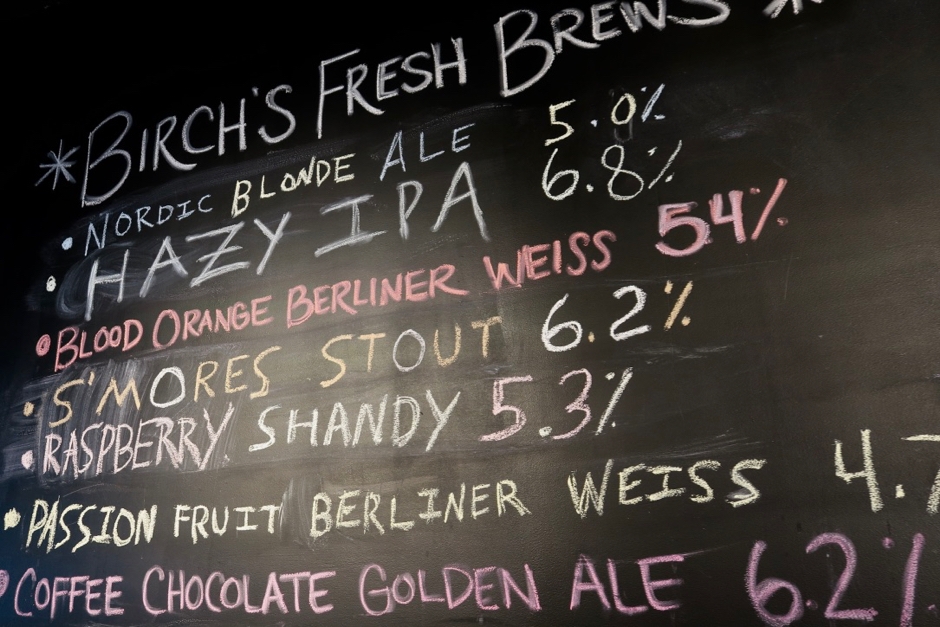 *BIRCH'S FRESH BREWS*
• NORDIC BLONDE ALE 5.0%
• HAZY IPA 6.8%
• BLOOD ORANGE BERLINER WEISS 54%
• S'MORES STOUT 6.2%
• RASPBERRY SHANDY 5.3%
• PASSION FRUIT BERLINER WEISS 4.7
• COFFEE CHOCOLATE GOLDEN ALE 6.2%